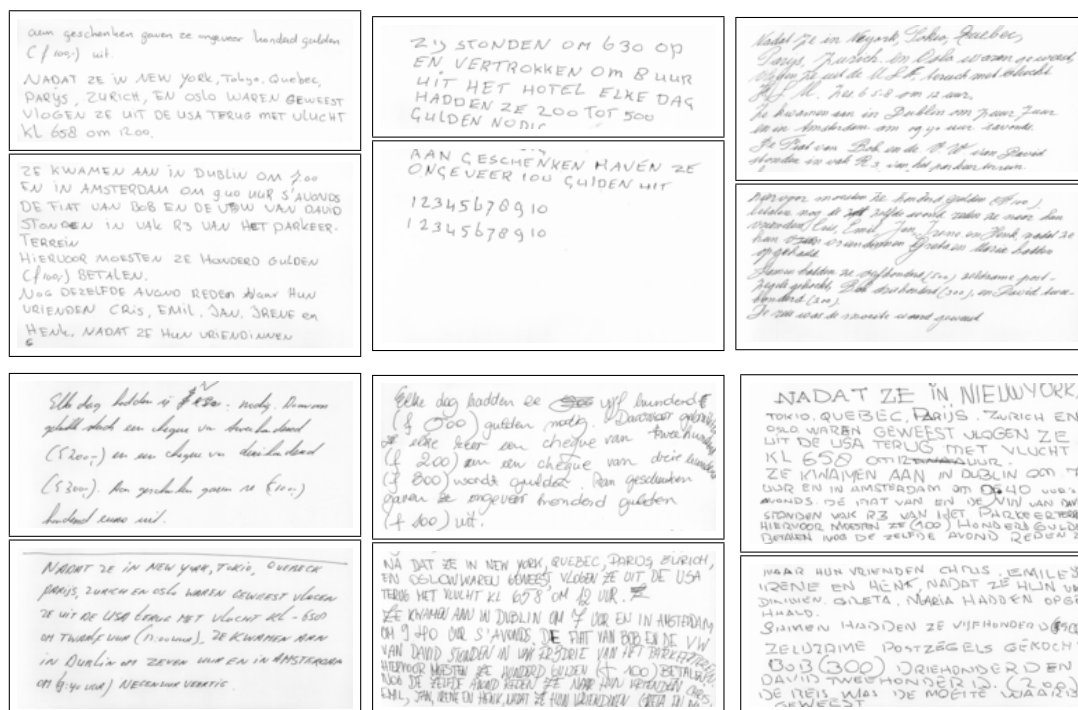 aan geschenken gaven ze ongeveer honderd gulden
(f 100,-) uit.
NADAT ZE IN NEW YORK, Tokyo, Quebec,
PARIJS, ZURICH, EN OSLO WAREN GEWEEST
VLOGEN ZE UIT DE USA TERUG MET VLUCHT
KL 658 OM 1200.
ZE KWAMEN AAN IN DUBLIN OM 7.00
EN IN AMSTERDAM OM 9.40 UUR S'AVONDS
DE FIAT VAN BOB EN DE VAN DAVID
STONDEN IN VAK R3 VAN HET PARKEER-
TERREIN
HIERVOOR MOESTEN ZE HONDERD GULDEN
(f 100,-) BETALEN.
NOG DEZELFDE AVOND REDEN Naar HUN
VRIENDEN CRIS, EMIL, JAN, IRENE en
HENK, NADAT ZE HUN VRIENDINNEN
ZIJ STONDEN OM 630 OP
EN VERTROKKEN OM 8 UUR
UIT HET HOTEL ELKE DAG
HADDEN ZE 200 TOT 500
GULDEN NODIG
AAN GESCHENKEN HAVEN ZE
ONGEVEER 100 GULDEN UIT
12345678910
12345678910
Nadat ze in Tokio, Quebec,
Parijs, Zurich en Oslo waren geweest,
vlogen ze uit de U.S.A. terug met vlucht
658 om 12 uur.
Ze kwamen aan in Dublin om 7 uur
en in Amsterdam om 9.40 uur savonds.
De Fiat van Bob en de V W van David
stonden in vak R3 van het parkeerterrein.
Hiervoor moesten ze honderd gulden
betalen nog de zelfde avond reden ze naar hun
vrienden Cris, Emil, Jan, Irene en Henk, nadat ze
hun vriendinnen Greta en Maria hadden
opgehaald
Samen hadden ze vijfhonderd (500) zeldzame post-
zegels gekocht, Bob driehonderd (300), en David twee-
honderd (200).
De reis was de moeite waard geweest
Elke dag hadden ze nodig. Daarvoor
een cheque van tweehonderd
(f 200,-) en een cheque van driehonderd
(f 300,-). Aan geschenken gaven ze (100,-)
honderd euro uit.
NADAT ZE IN NEW YORK, TOKIO, QUEBECK
PARIJS, ZURICH EN OSLO WAREN GEWEEST VLOGEN
ZE UIT DE USA TERUG MET VLUCHT KL - 658
OM TWAALF UUR (12.00 UUR). ZE KWAMEN AAN
IN DUBLIN OM ZEVEN UUR EN IN AMSTERDAM
OM (9:40 UUR) NEGEN UUR VEERTIG.
Elke dag hadden ze vijf hunderd
(f 500) gulden nodig. Daarvoor
ze elke keer een cheque van
(f 200) en een cheque van drie
(f 300) wordt gulden. Aan geschenken
gaven ze ongeveer honderd gulden
(f 100) uit.
NA DAT ZE IN NEW YORK, QUEBEC, PARIJS ZURICH,
EN OSLOW WAREN GEWEEST VLOGEN ZE UIT DE USA
TERUG MET VLUCHT KL 658 OM 12 UUR.
ZE KWAMEN AAN IN DUBLIN OM 7 UUR EN IN AMSTERDAM
OM 9 40 UUR S'AVONDS. DE FIAT VAN BOB EN DE VW
VAN DAVID STONDEN IN VAK VAN HET
HIERVOOR MOESTEN ZE HONDERD GULDEN (f 100) BETALEN
NOG DE ZELFDE AVOND REDEN ZE NAAR HUN VRIENDEN
EMIL, JAN, IRENE EN HENK, NADAT ZE HUN VRIENDINEN GRETA EN
NADAT ZE IN NIEUWYORK,
TOKIO, QUEBEC, PARIJS, ZURICH EN
OSLO WAREN GEWEEST VLOGEN ZE
UIT DE USA TERUG MET VLUCHT
KL 658 OM 12 UUR.
ZE KWAMEN AAN IN DUBLIN OM
UUR EN IN AMSTERDAM OM 0640
AVONDS. DE FIAT VAN EN DE VAN
STONDEN VAK R3 VAN HET
HIERVOOR MOESTEN ZE (100) HONDERD
BETALEN NOG DE ZELFDE AVOND REDEN
NAAR HUN VRIENDEN CHRIS, EMILE
IRENE EN HENK, NADAT ZE HUN
GRETA, MARIA HADDEN
HAALD.
SAMEN HADDEN ZE VIJFHONDERD
ZELDZAME POSTZEGELS
BOB (300) DRIEHONDERD EN
DAVID TWEEHONDERD (200)
DE REIS WAS DE MOEITE
GEWEEST